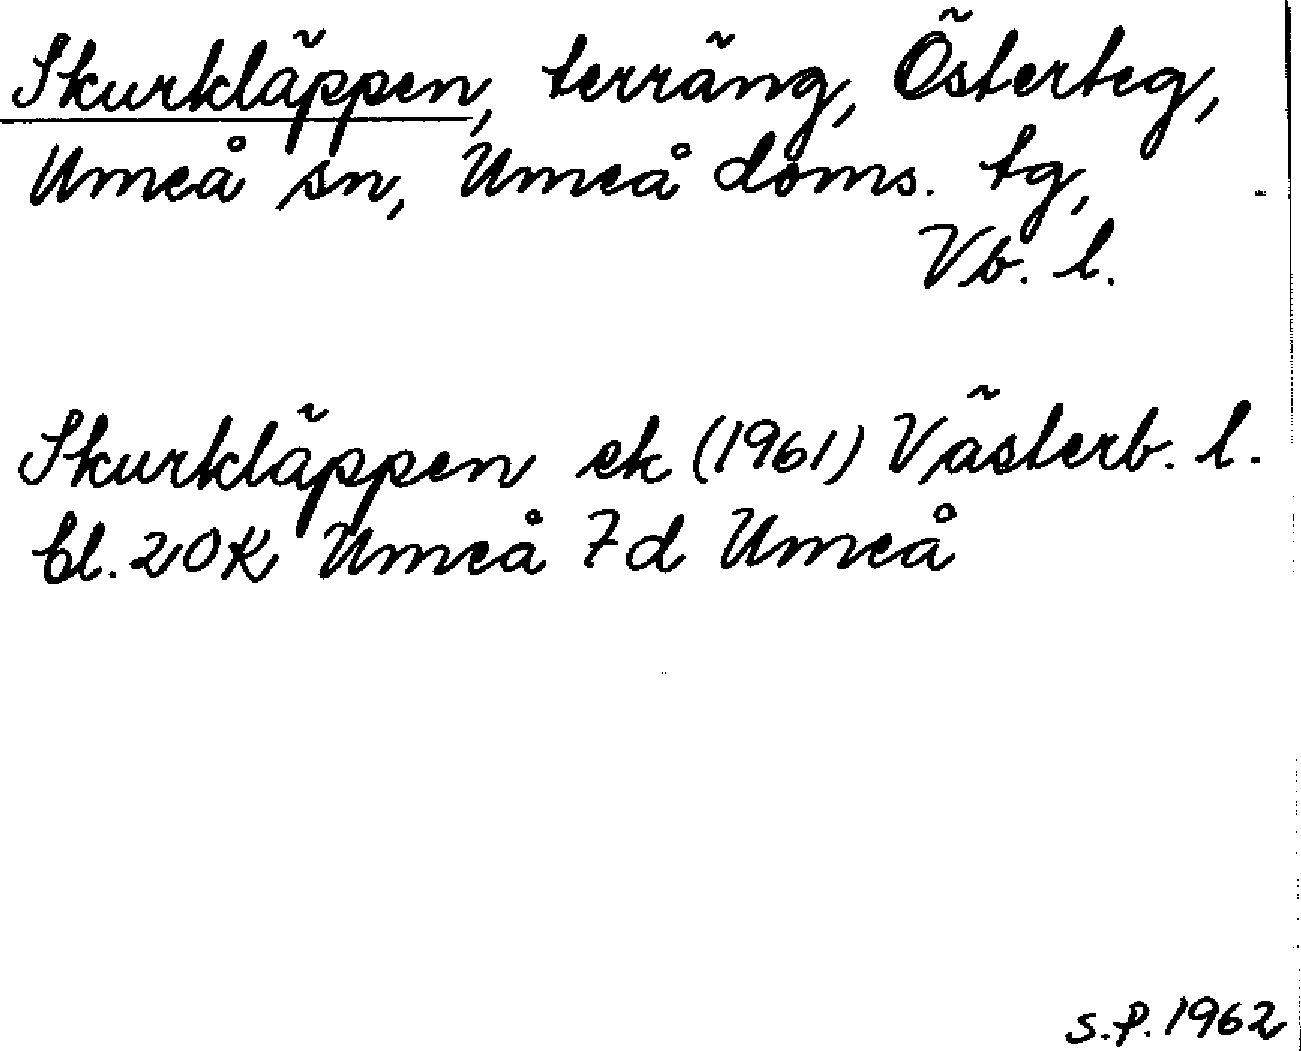 Skurkläppen, terräng, Österteg,
Umeå sn, Umeå doms. tg,
Vb. l.
Skurkläppen ek (1961) Västerb. l.
bl. 20K Umeå 7d Umeå
S.P. 1962